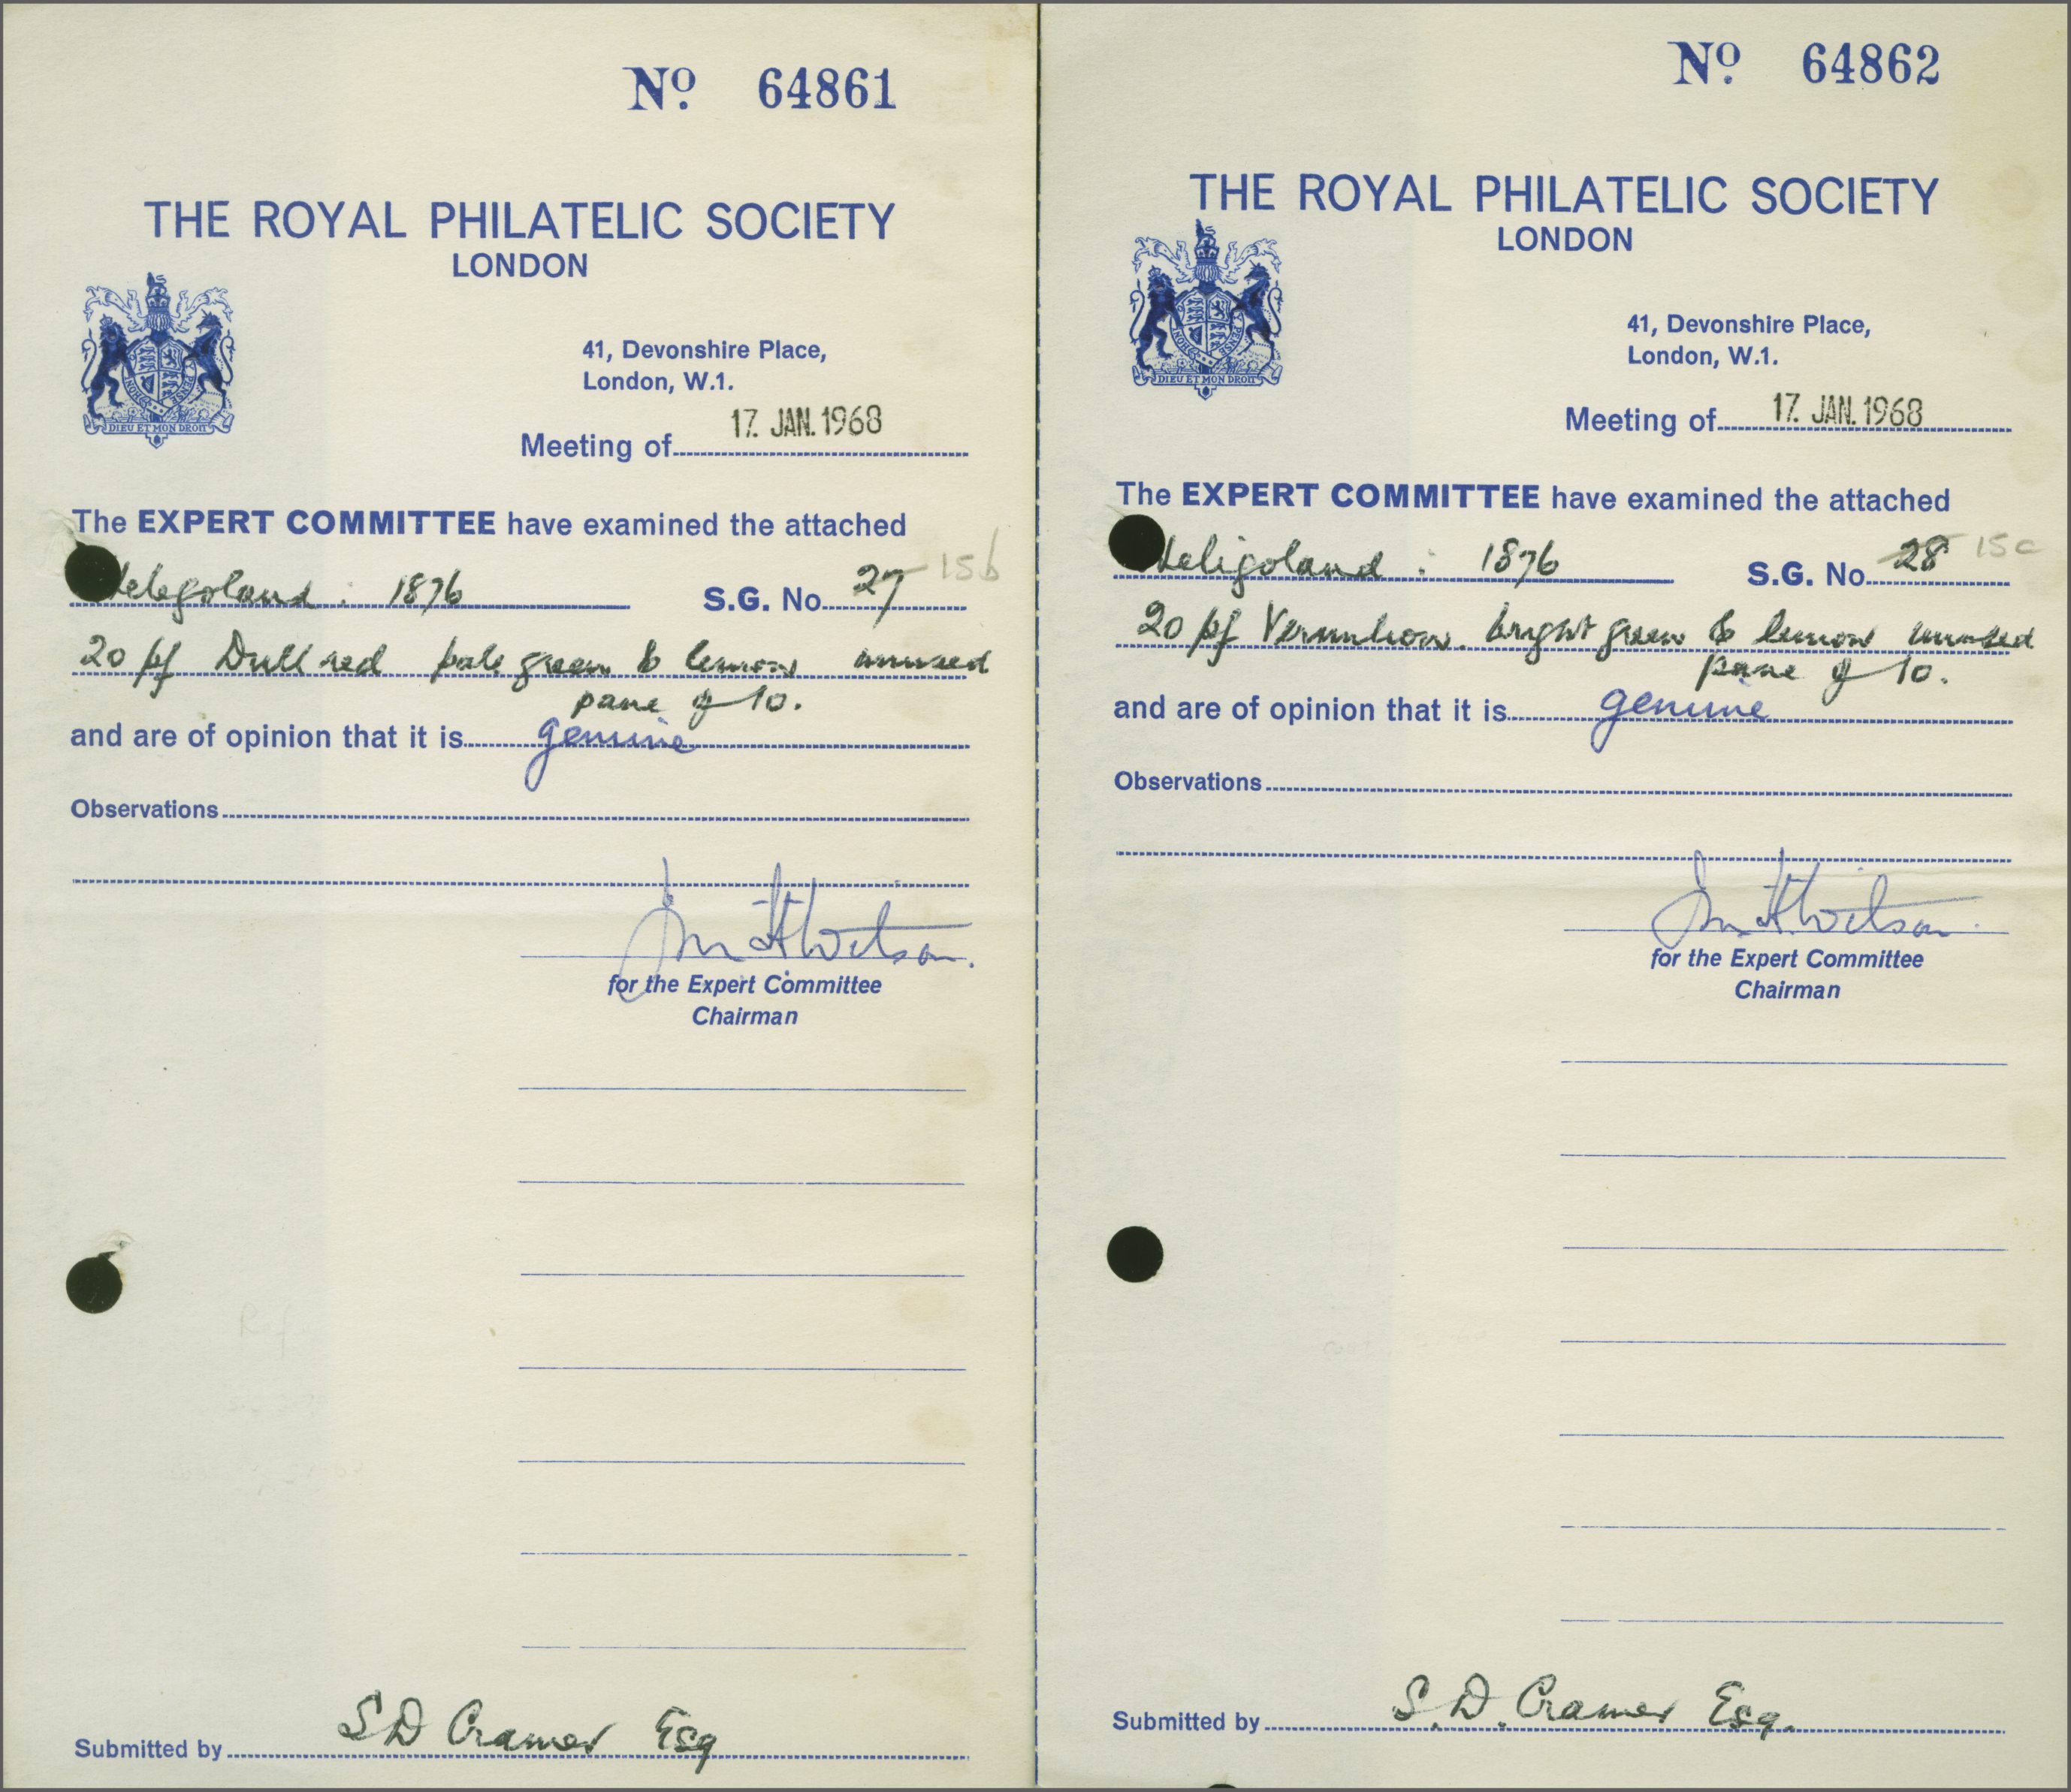 Nº. 64861
THE ROYAL PHILATELIC SOCIETY
LONDON
DIEU ET MON DROIT
41, Devonshire Place,
London, W.1.
Meeting of 17. JAN. 1968
The EXPERT COMMITTEE have examined the attached
Helegoland : 1876 S.G. No. 27 15b
20 pf Dull red pale green & lemon unused
pane of 10.
and are of opinion that it is genuine
Observations
Jn. H Wilson.
for the Expert Committee
Chairman
Submitted by S D Cramer Esq
Nº. 64862
THE ROYAL PHILATELIC SOCIETY
LONDON
DIEU ET MON DROIT
41, Devonshire Place,
London, W.1.
Meeting of 17. JAN. 1968
The EXPERT COMMITTEE have examined the attached
Heligoland : 1876 S.G. No. 28 15c
20 pf Vermilion. bright green & lemon unused
pane of 10.
and are of opinion that it is genuine
Observations
Jn. H. Wilson.
for the Expert Committee
Chairman
Submitted by S. D. Cramer Esq.